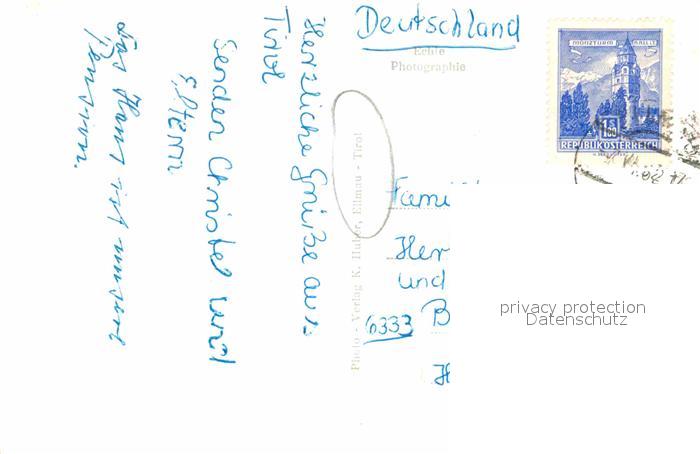 Deutschland
Echte
Photographie
MÜNZTURM HALL I. T.
1.50
S
REPUBLIK ÖSTERREICH
Herzliche Grüße aus
Tirol
senden Christel und
Eltern
Das Haus ist unsere
Pension.
Photo - Verlag K. Huber, Ellmau - Tirol
Fami
Her
und
6333 B
H
privacy protection
Datenschutz